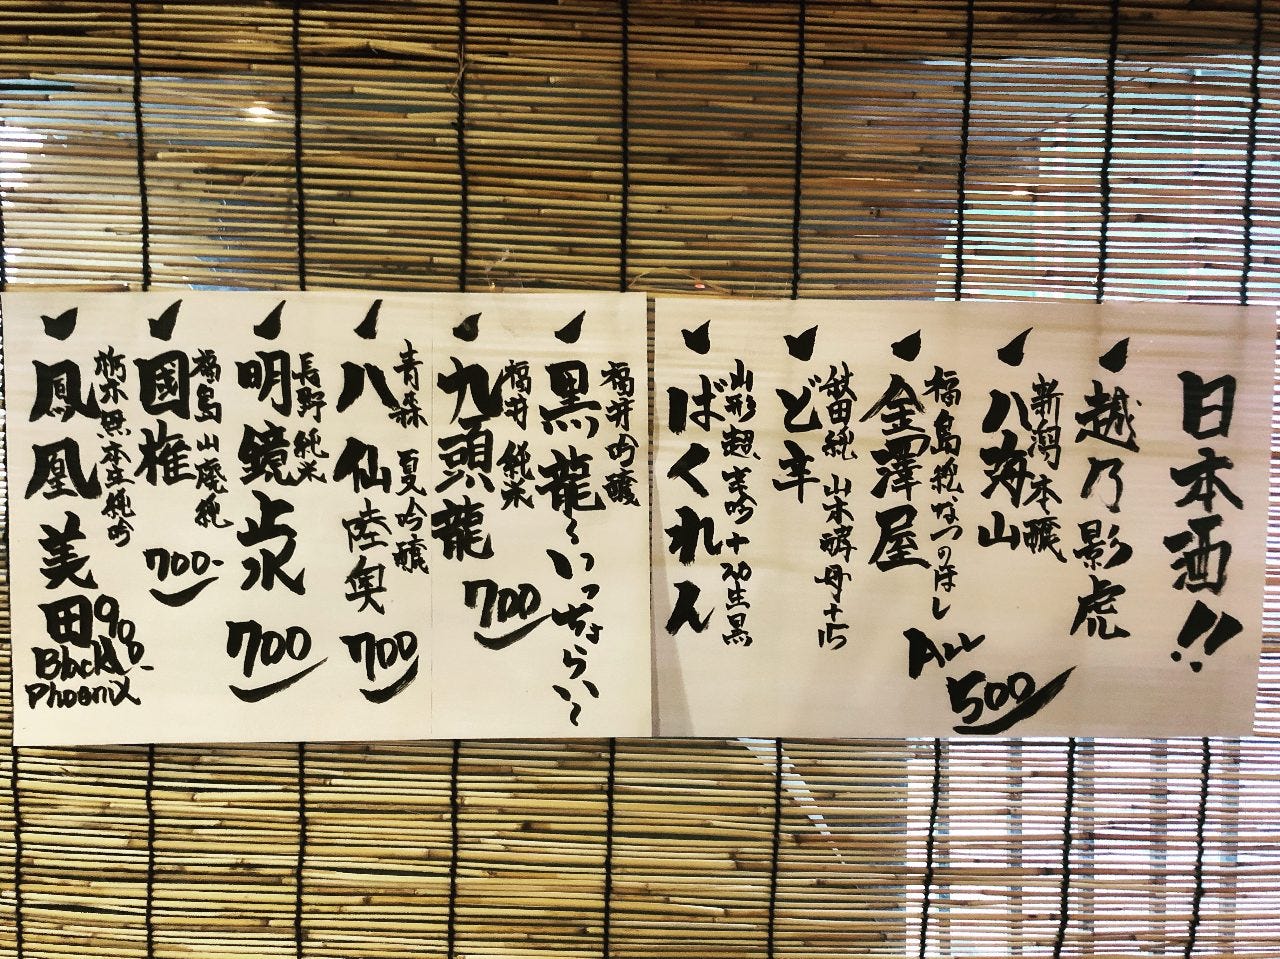 日本酒!!
越乃影虎
新潟本醸
八海山
福島純、なつのほし
金澤屋
ALL
500
秋田純 山本酵母+15
ど辛
山形超、辛吟+20生黒
ばくれん
福井吟醸
黒龍～いっちょらい～
福井 純米
九頭龍
700
青森 夏吟醸
八仙 陸奥
700
長野純米
明鏡止水
700
福島山廃純
國権
700-
栃木無本立純吟
鳳凰美田
900-
Black
Phoenix